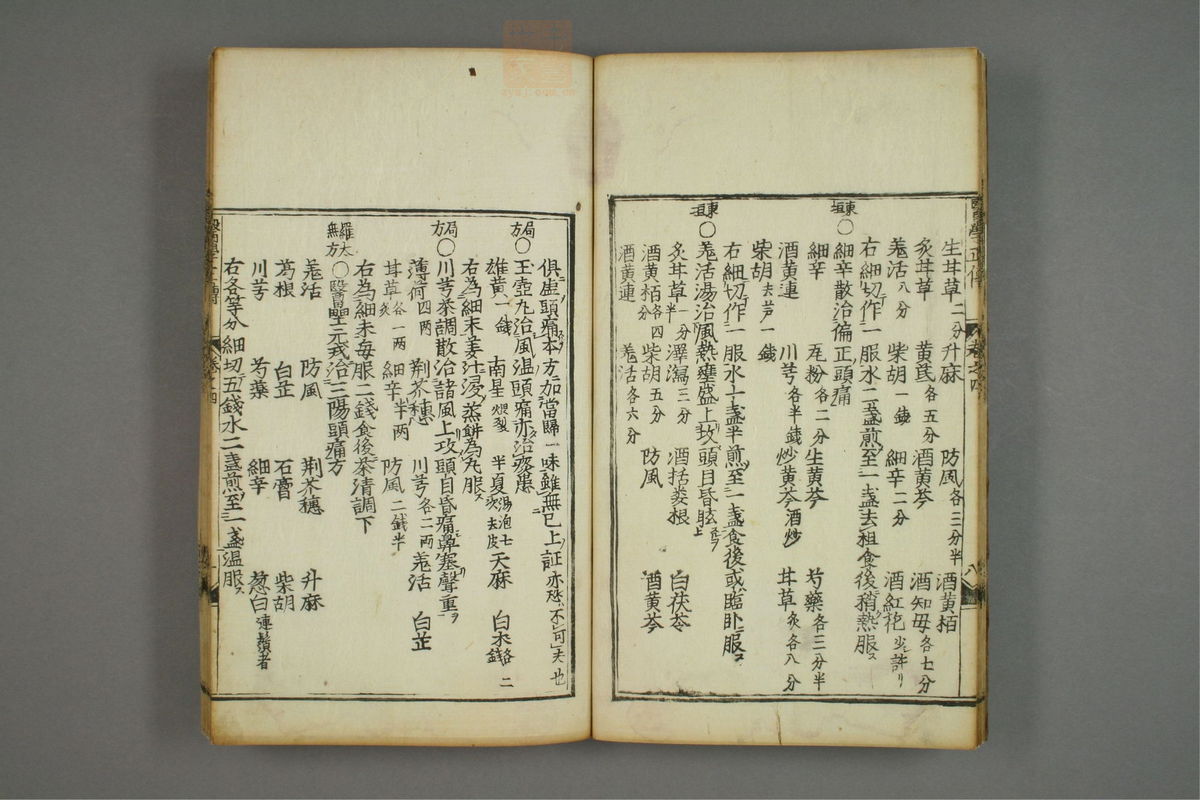 生甘草二分 升麻 防風各三分半 酒黃栢
炙甘草 黃芪各五分 酒黃芩 酒知母各七分
羗活八分 柴胡一錢 細辛二分 酒紅花少許
右細切作一服水二盞煎至一盞去柤食後稍熱服
東垣○細辛散治徧正頭痛
細辛 瓦粉各二分 生黃芩 芍藥各三分半
酒黃連 川芎各半錢 炒黃芩酒炒 甘草炙各八分
柴胡去芦一錢
右細切作一服水上盞半煎至一盞食後或臨卧服
東垣○羗活湯治風熱壅盛上攻頭目昏眩
炙甘草一分半 澤瀉三分 酒括蒌根 白茯苓
酒黃栢各四分 柴胡五分 防風 酒黃芩
酒黃連 羗活各六分
俱虛頭痛本方加當歸一味雖無已上証亦然不可夫也
局方○玉壺丸治風温頭痛亦治痰患
雄黃一錢 南星煨裂 半夏湯泡七次去皮 天麻 白朮各二錢
右為細末姜汁浸蒸餅為丸服
局方○川芎茶調散治諸風上攻頭目昏痛鼻塞聲重
薄荷四兩 荆芥穗 川芎各二兩 羗活 白芷
甘草炙各一兩 細辛半兩 防風二錢半
右為細末每服二錢食後茶清調下
羅太無方○醫壘元戎治三陽頭痛方
羗活 防風 荆芥穗 升麻
葛根 白芷 石膏 柴胡
川芎 芍藥 細辛 葱白連鬚者
右各等分細切五錢水二盞煎至一盞温服